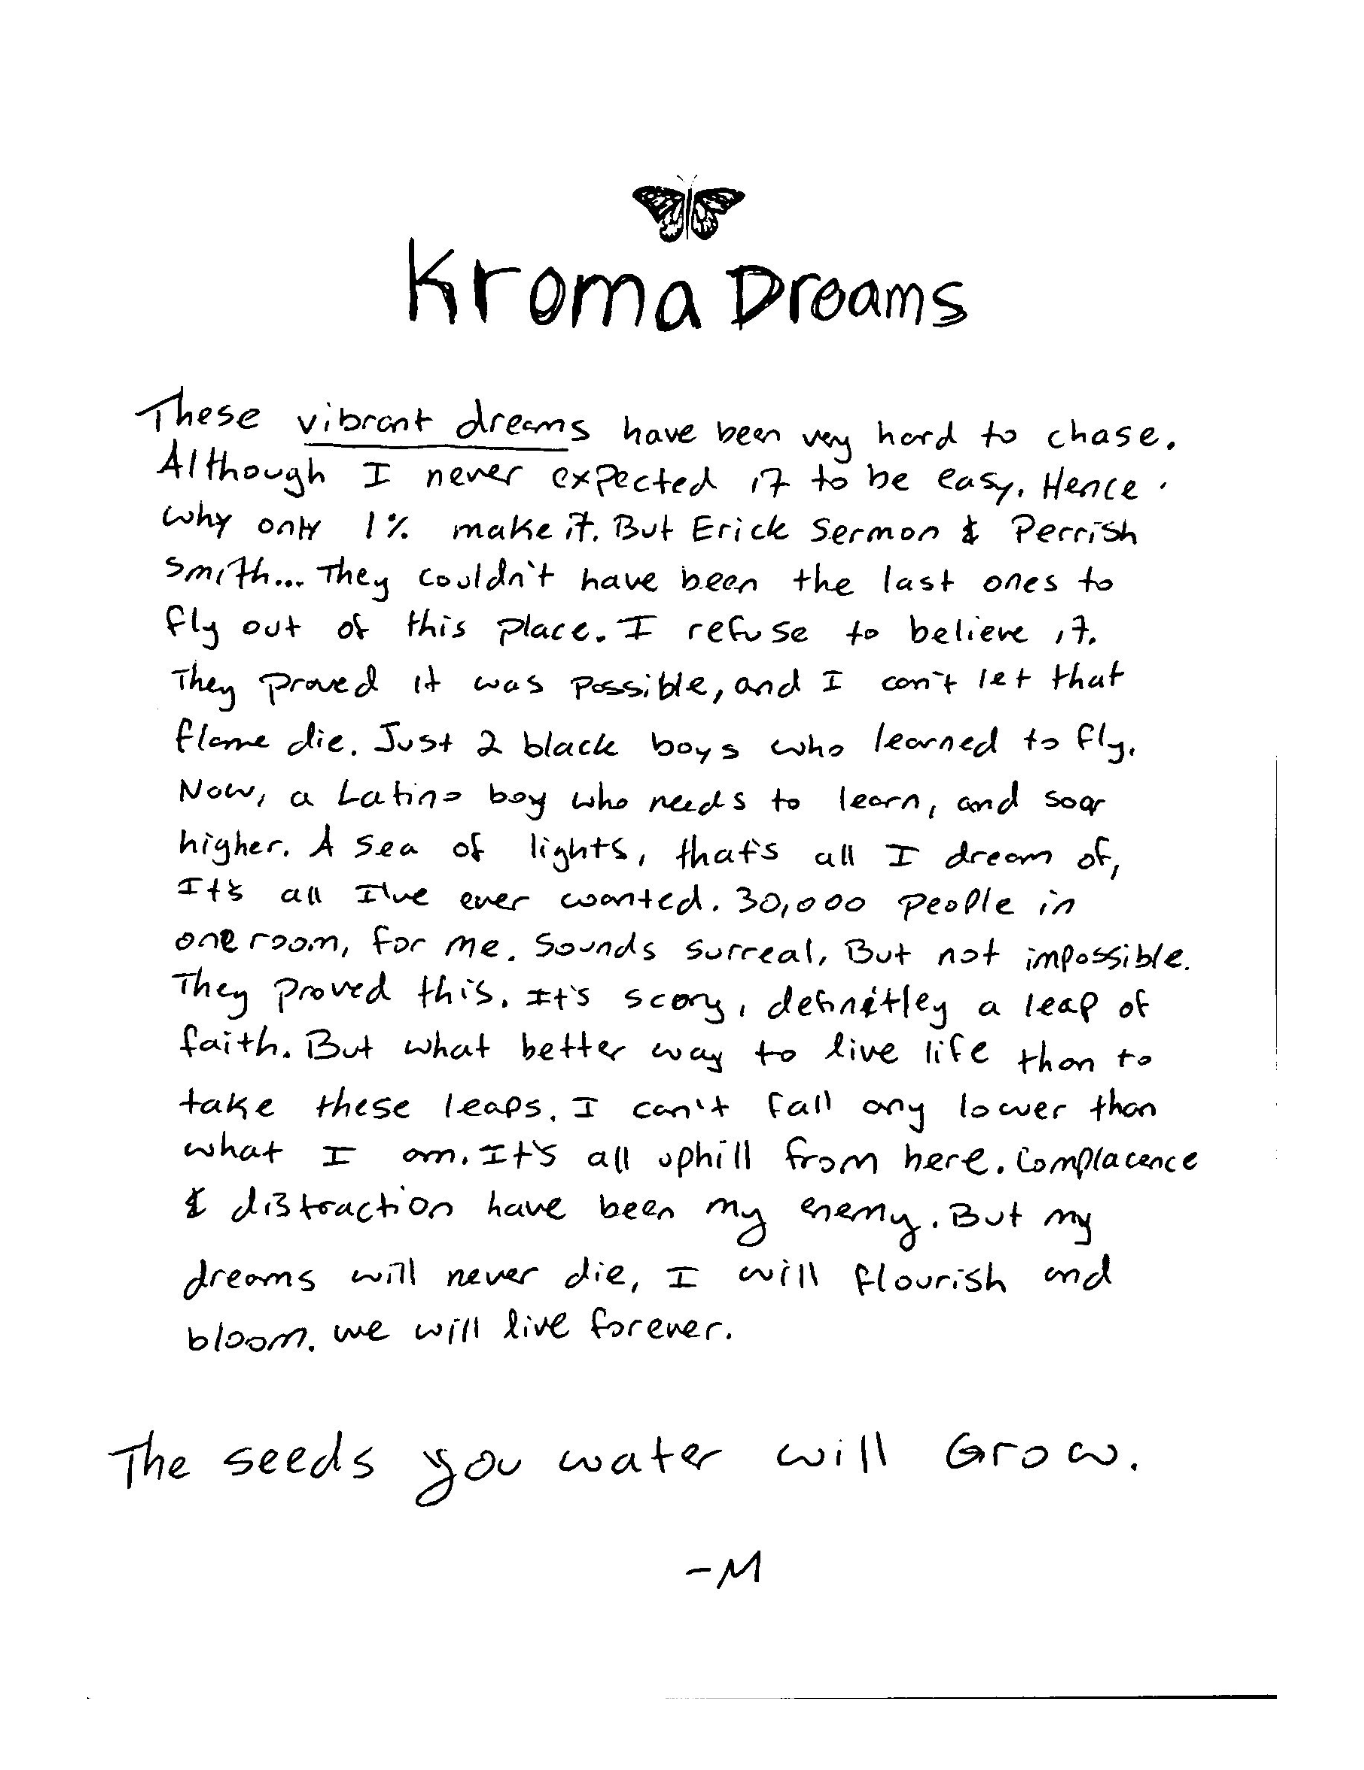 Kroma Dreams
These vibrant dreams have been very hard to chase.
Although I never expected it to be easy. Hence
why only 1% make it. But Erick Sermon & Perrish
Smith... They couldn't have been the last ones to
fly out of this place. I refuse to believe it.
They proved it was possible, and I can't let that
flame die. Just 2 black boys who learned to fly.
Now, a Latino boy who needs to learn, and soar
higher. A sea of lights, that's all I dream of,
It's all I've ever wanted. 30,000 people in
one room, for me. Sounds surreal, But not impossible.
They proved this. It's scary, definitley a leap of
faith. But what better way to live life than to
take these leaps. I can't fall any lower than
what I am. It's all uphill from here. Complacence
& distraction have been my enemy. But my
dreams will never die, I will flourish and
bloom. we will live forever.
The seeds you water will Grow.
-M